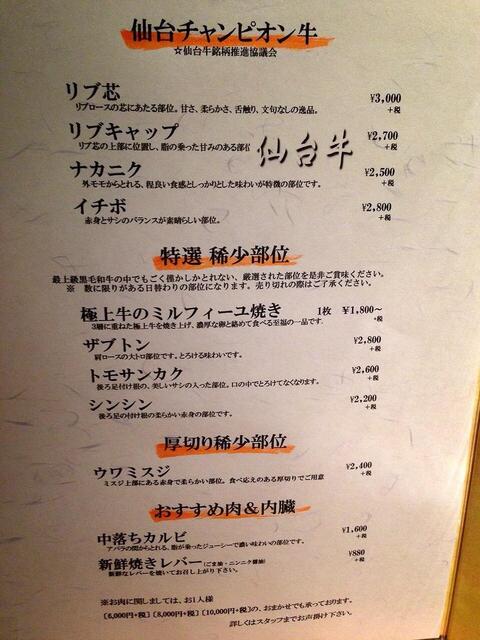 仙台チャンピオン牛
☆仙台牛銘柄推進協議会
リブ芯 ¥3,000
リブロースの芯にあたる部位。甘さ、柔らかさ、舌触り、文句なしの逸品。 +税
リブキャップ ¥2,700
リブ芯の上部に位置し、脂の乗った甘みのある部位 +税
仙台牛
ナカニク ¥2,500
外モモからとれる、程良い食感としっかりとした味わいが特徴の部位です。 +税
イチボ ¥2,800
赤身とサシのバランスが素晴らしい部位。 +税
特選 稀少部位
最上級黒毛和牛の中でもごく僅かしかとれない、厳選された部位を是非ご賞味ください。
※ 数に限りがある日替わりの部位になります。売り切れの際はご了承ください。
極上牛のミルフィーユ焼き 1枚 ¥1,800~
3層に重ねた極上牛を焼き上げ、濃厚な卵と絡めて食べる至福の一品です。 +税
ザブトン ¥2,800
肩ロースの大トロ部位です。とろける味わいです。 +税
トモサンカク ¥2,600
後ろ足付け根の、美しいサシの入った部位。口の中でとろけてなくなります。 +税
シンシン ¥2,200
後ろ足の付け根の柔らかい赤身の部位です。 +税
厚切り稀少部位
ウワミスジ ¥2,400
ミスジ上部にある赤身で柔らかい部位。食べ応えのある厚切りでご用意 +税
おすすめ肉&内臓
中落ちカルビ ¥1,600
アバラの間からとれる、脂が乗ったジューシーで濃い味わいの部位です。 +税
新鮮焼きレバー(ごま油・ニンニク醤油) ¥880
新鮮なレバーを焼いてお召し上がり下さい。 +税
※お肉に関しましては、お1人様
[6,000円+税] [8,000円+税] [10,000円+税]の、おまかせでも承っております。
詳しくはスタッフまでお声掛け下さい。